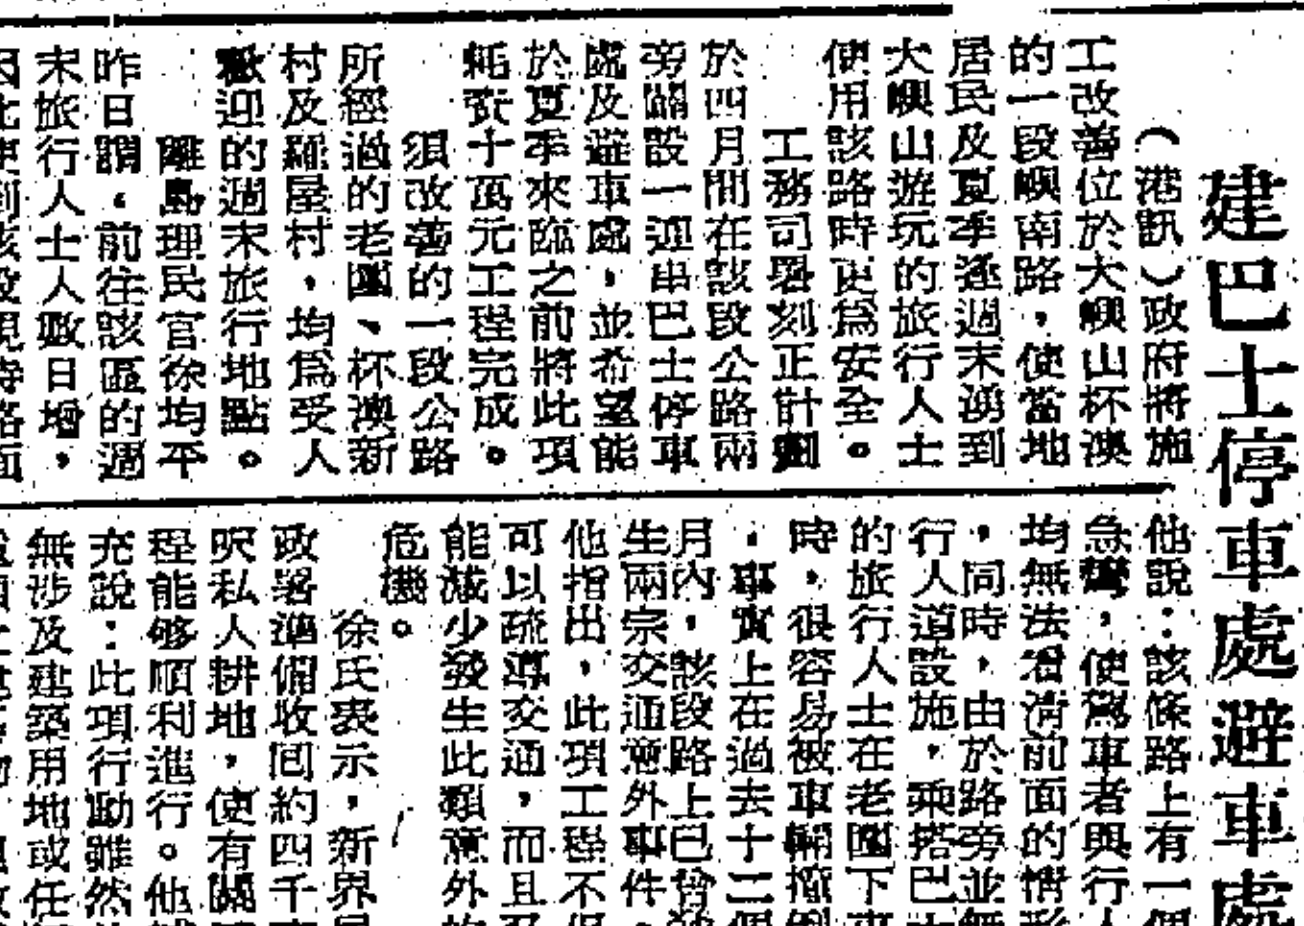 建巴士停車處避車處
（港訊）政府將施
工改善位於大嶼山杯澳
的一段嶼南路，使當地
居民及夏季逐週末湧到
大嶼山遊玩的旅行人士
使用該路時更為安全。
工務司署刻正計劃
於四月間在該段公路兩
旁闢設一連串巴士停車
處及避車處，並希望能
於夏季來臨之前將此項
耗資十萬元工程完成。
須改善的一段公路
所經過的老圍、杯澳新
村及羅屋村，均為受人
歡迎的週末旅行地點。
離島理民官徐均平
昨日謂，前往該區的週
末旅行人士人數日增，
因此使到該段現時路面
他說：該條路上有一個
急彎，使駕車者與行人
均無法看清前面的情形
，同時，由於路旁並無
行人道設施，乘搭巴士
的旅行人士在老圍下車
時，很容易被車輛撞倒
，事實上在過去十二個
月內，該段路上已曾發
生兩宗交通意外事件。
他指出，此項工程不但
可以疏導交通，而且
能減少發生此類意外的
危機。
徐氏表示，新界民
政署準備收回約四千
呎私人耕地，使有關
程能够順利進行。他補
充說：此項行動雖然
無涉及建築用地或任